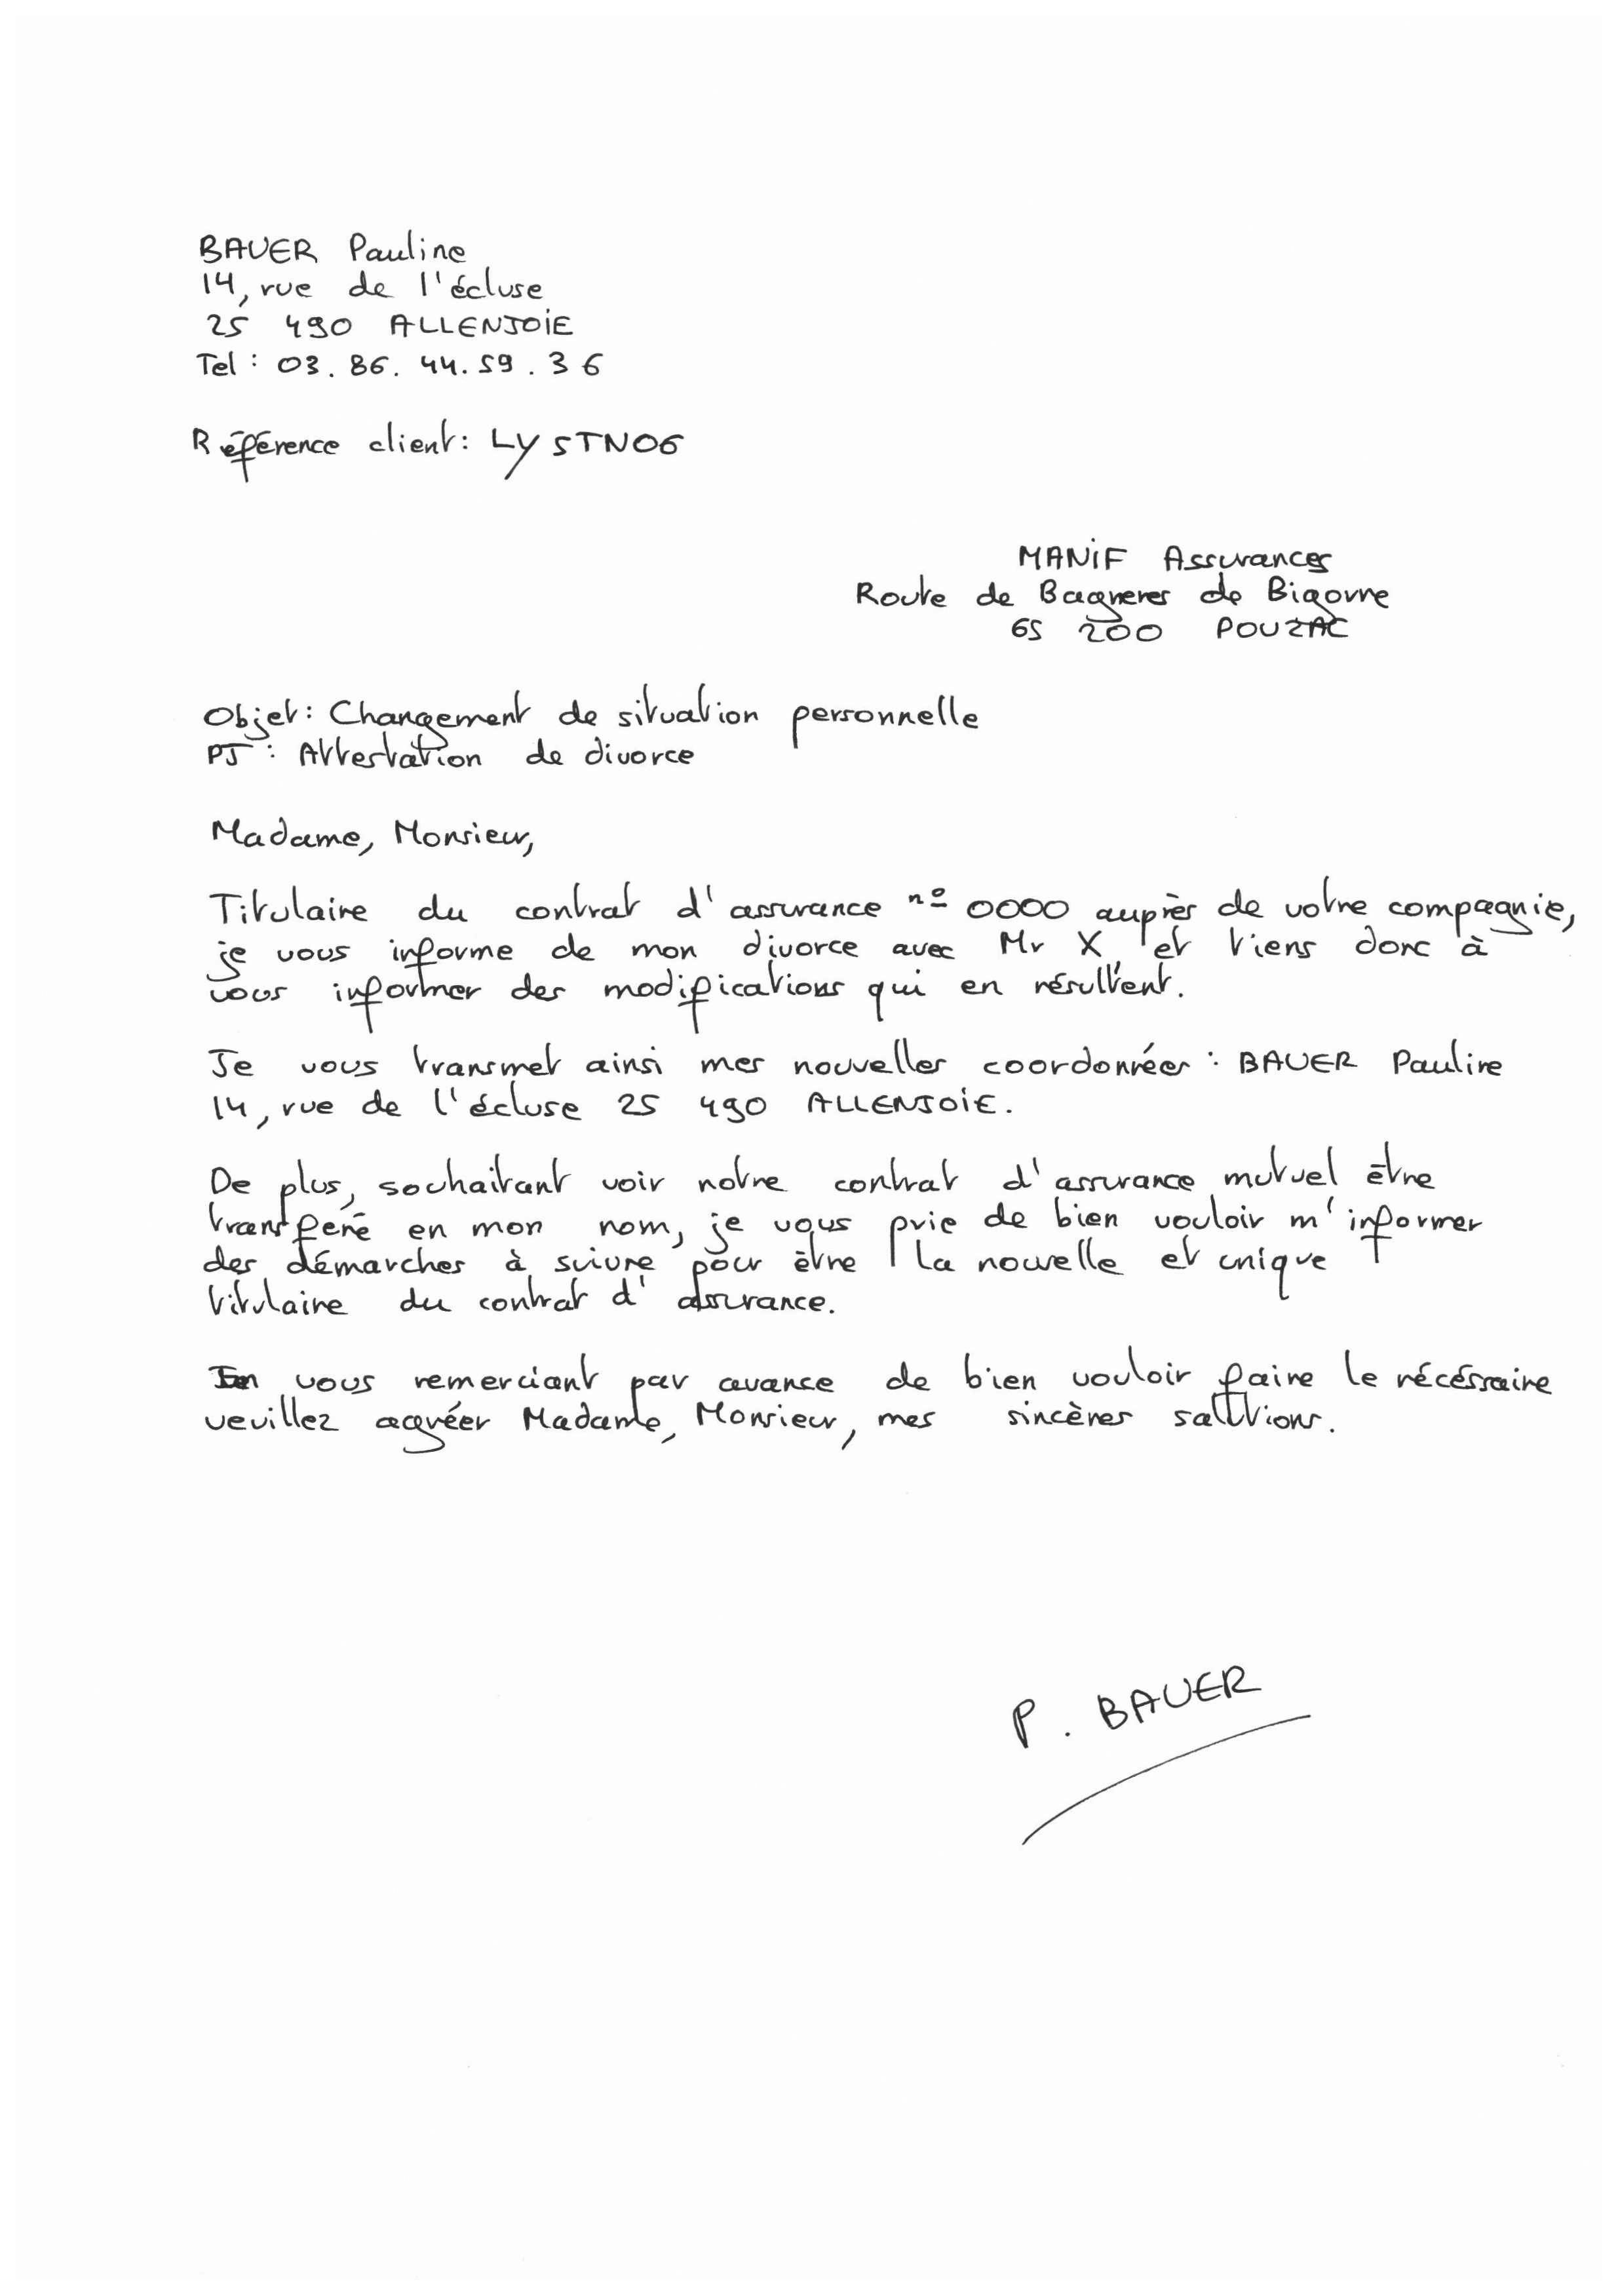 BAUER Pauline
14, rue de l'écluse
25 490 ALLENJOIE
Tel : 03. 86. 44. 59. 36
Référence client : LYSTN06
MANIF Assurances
Route de Bagneres de Bigorre
65 200 POUZAC
Objet : Changement de situation personnelle
PJ : Attestation de divorce
Madame, Monsieur,
Titulaire du contrat d'assurance n° 0000 auprès de votre compagnie,
je vous informe de mon divorce avec Mr X, et tiens donc à
vous informer des modifications qui en résultent.
Je vous transmet ainsi mes nouvelles coordonnées : BAUER Pauline
14, rue de l'écluse 25 490 ALLENJOIE.
De plus, souhaitant voir notre contrat d'assurance mutuel être
transféré en mon nom, je vous prie de bien vouloir m'informer
des démarches à suivre pour être la nouvelle et unique
titulaire du contrat d'assurance.
En vous remerciant par avance de bien vouloir faire le nécéssaire
veuillez agréer Madame, Monsieur, mes sincères
P. BAUER